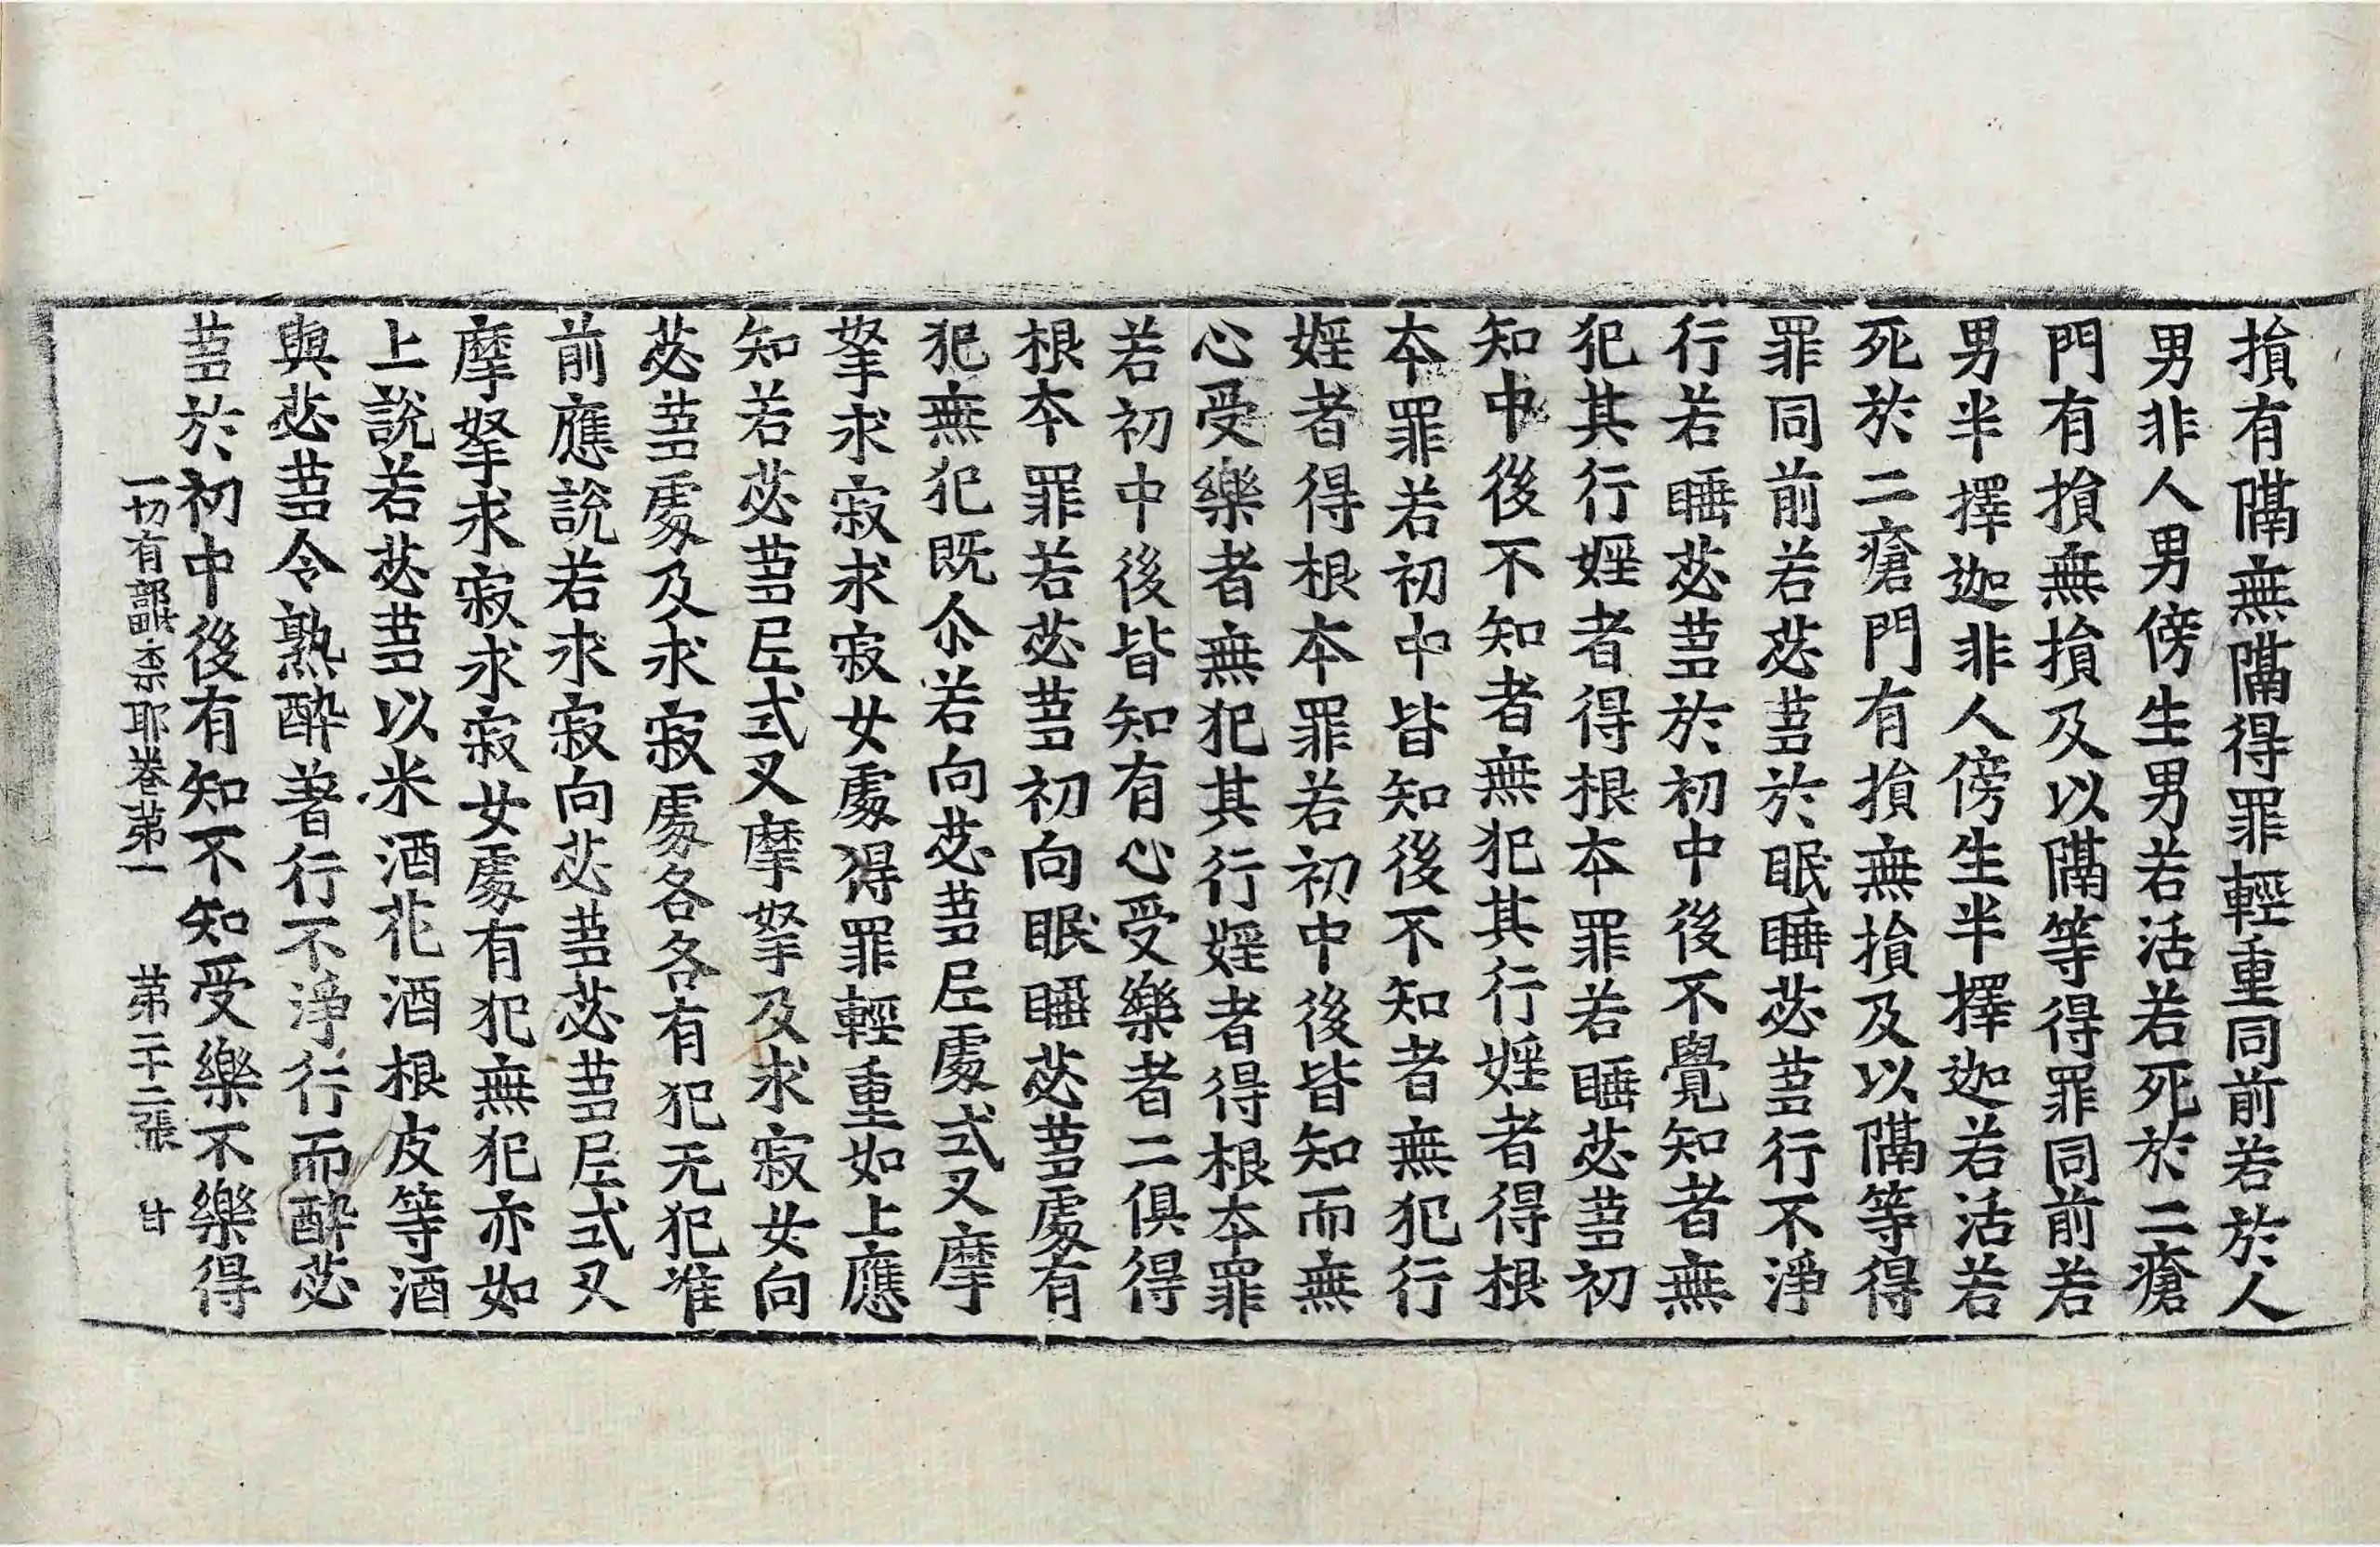 損有隔無隔得罪輕重同前若於人
男非人男傍生男若活若死於二瘡
門有損無損及以隔等得罪同前若
男半擇迦非人傍生半擇迦若活若
死於二瘡門有損無損及以隔等得
罪同前若苾蒭於眠睡苾蒭行不淨
行若睡苾蒭於初中後不覺知者無
犯其行婬者得根本罪若睡苾蒭初
知中後不知者無犯其行婬者得根
本罪若初中皆知後不知者無犯行
婬者得根本罪若初中後皆知而無
心受樂者無犯其行婬者得根本罪
若初中後皆知有心受樂者二俱得
根本罪若苾蒭初向眠睡苾蒭處有
犯無犯既尒若向苾蒭尼處式叉摩
拏求寂求寂女處得罪輕重如上應
知若苾蒭尼式叉摩拏及求寂女向
苾蒭處及求寂處各各有犯无犯准
前應說若求寂向苾蒭苾蒭尼式叉
摩拏求寂求寂女處有犯無犯亦如
上說若苾蒭以米酒花酒根皮等酒
與苾蒭令熟醉著行不淨行而醉苾
蒭於初中後有知不知受樂不樂得
一切有部毗奈耶卷苐一 苐二十二張 甘